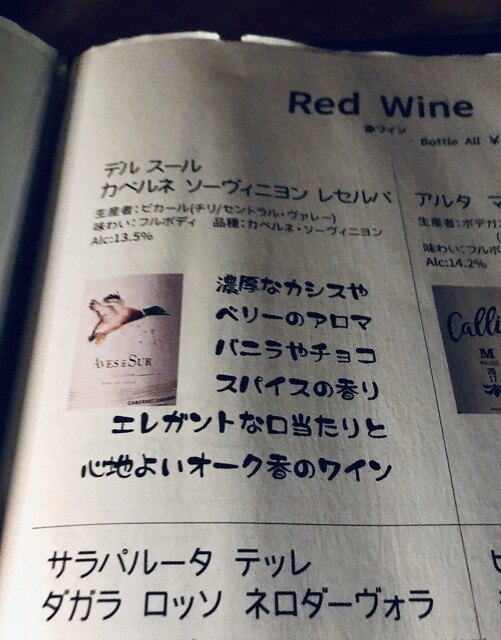 Red Wine
赤ワイン
Bottle All ¥
デル スール
カベルネ ソーヴィニヨン レセルバ
生産者：ビカール(チリ/セントラル・ヴァレー)
味わい：フルボディ 品種：カベルネ・ソーヴィニヨン
Alc:13.5%
AVES DEL SUR
CABERNET
濃厚なカシスや
ベリーのアロマ
バニラやチョコ
スパイスの香り
エレガントな口当たりと
心地よいオーク香のワイン
アルタ マ
生産者：ボデガ
味わい：フルボ
Alc:14.2%
Calli
M
サラパルータ テッレ
ダガラ ロッソ ネロダーヴォラ